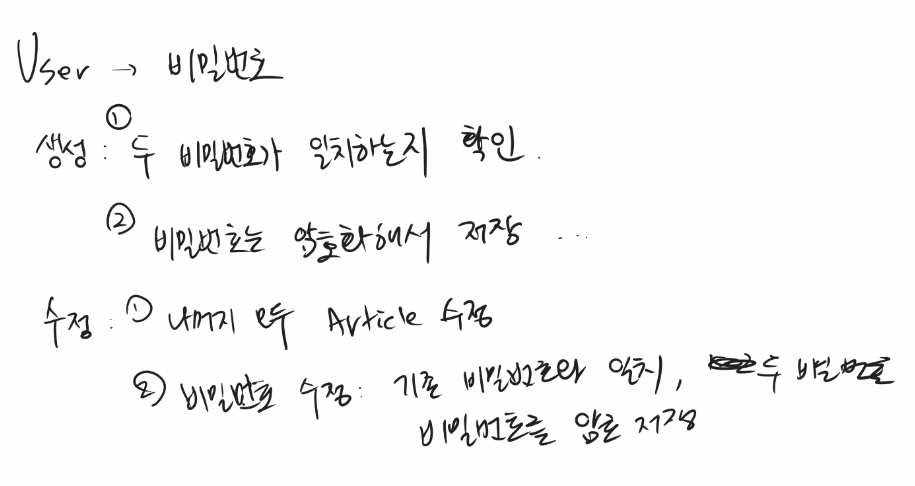 User → 비밀번호
생성 : ① 두 비밀번호가 일치하는지 확인.
② 비밀번호는 암호화해서 저장 ...
수정 : ① 나머지 모두 Article 수정
② 비밀번호 수정 : 기존 비밀번호와 일치, 두 비밀번호
비밀번호를 암호 저장